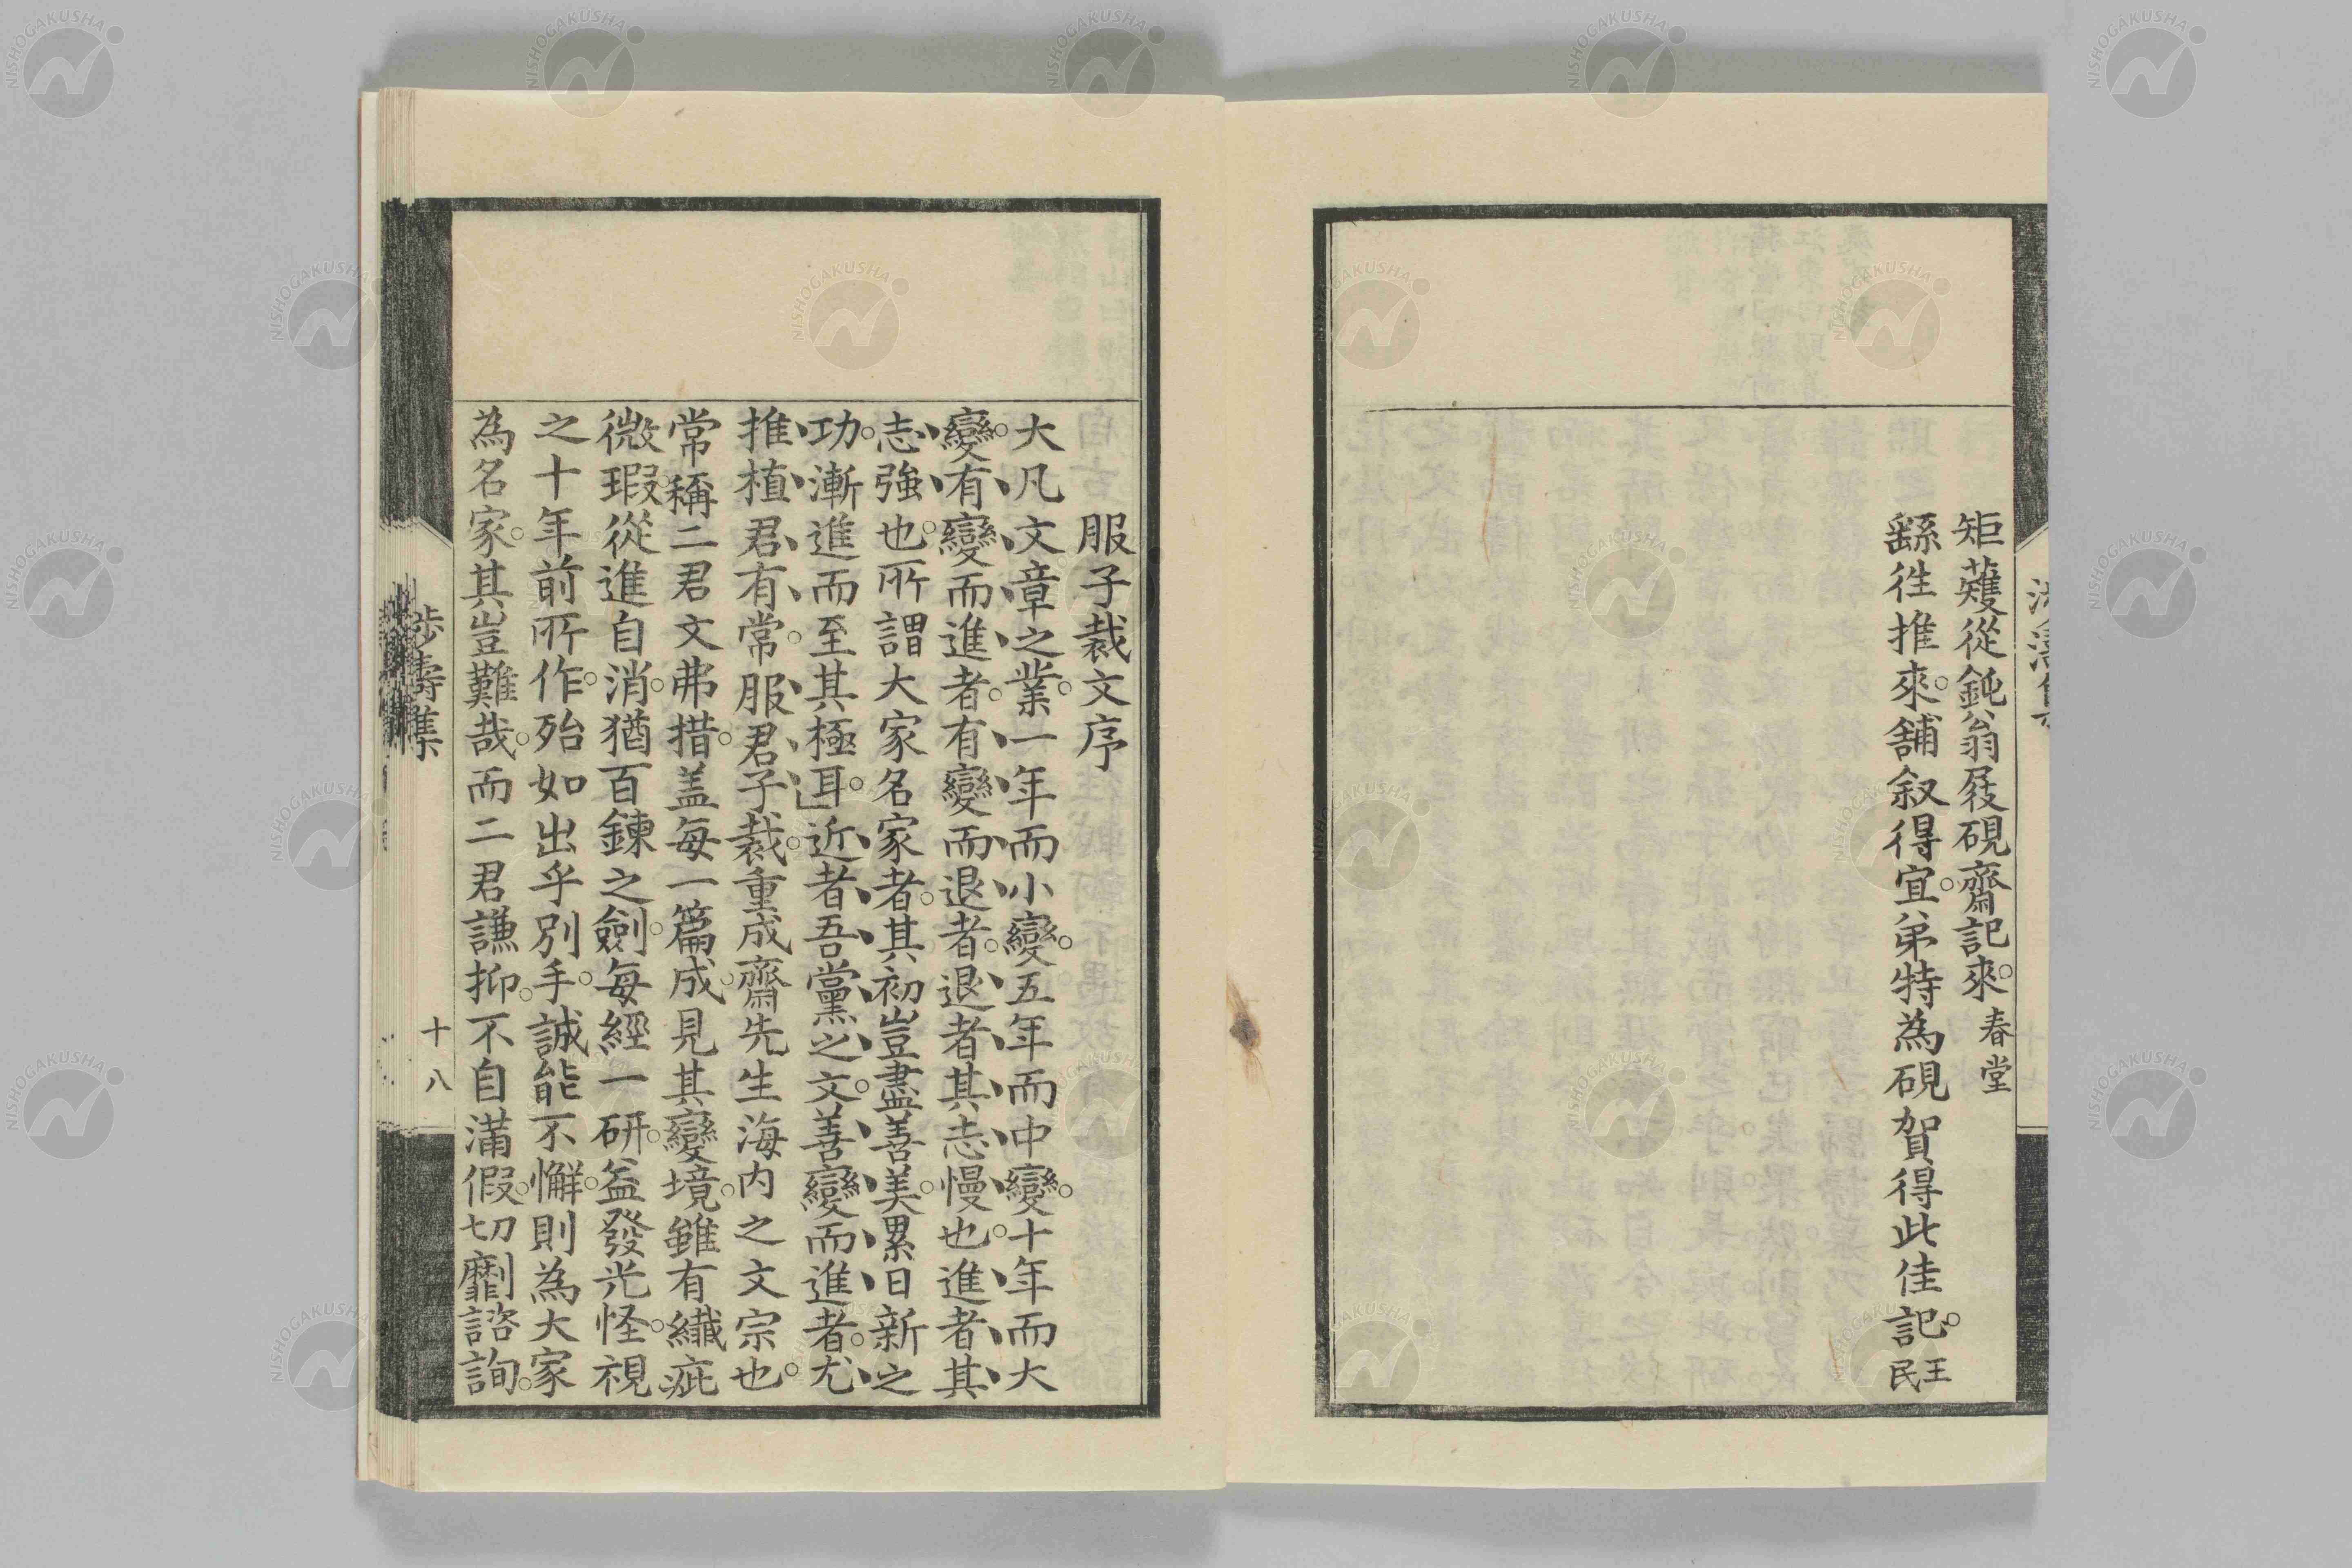 矩矱從鈍翁屐硯齋記來。春堂
繇往推來。舖叙得宜。弟特為硯賀得此佳記。王民
服子裁文序
大凡文章之業。一年而小變。五年而中變。十年而大
變。有變而進者。有變而退者。退者其志慢也。進者其
志強也。所謂大家名家者。其初豈盡善美。累日新之
功。漸進而至其極耳。」近者吾黨之文。善變而進者。尤
推植君有常。服君子裁。重成齋先生海內之文宗也。
常稱二君文弗措。盖每一篇成。見其變境。雖有纖疵
微瑕。從進自消。猶百鍊之劍。每經一研。益發光怪。視
之十年前所作。殆如出乎別手。誠能不懈。則為大家
為名家。其豈難哉。而二君謙抑。不自滿假。切劘諮詢。
涉濤集
十八
NISHOGAKUSHA